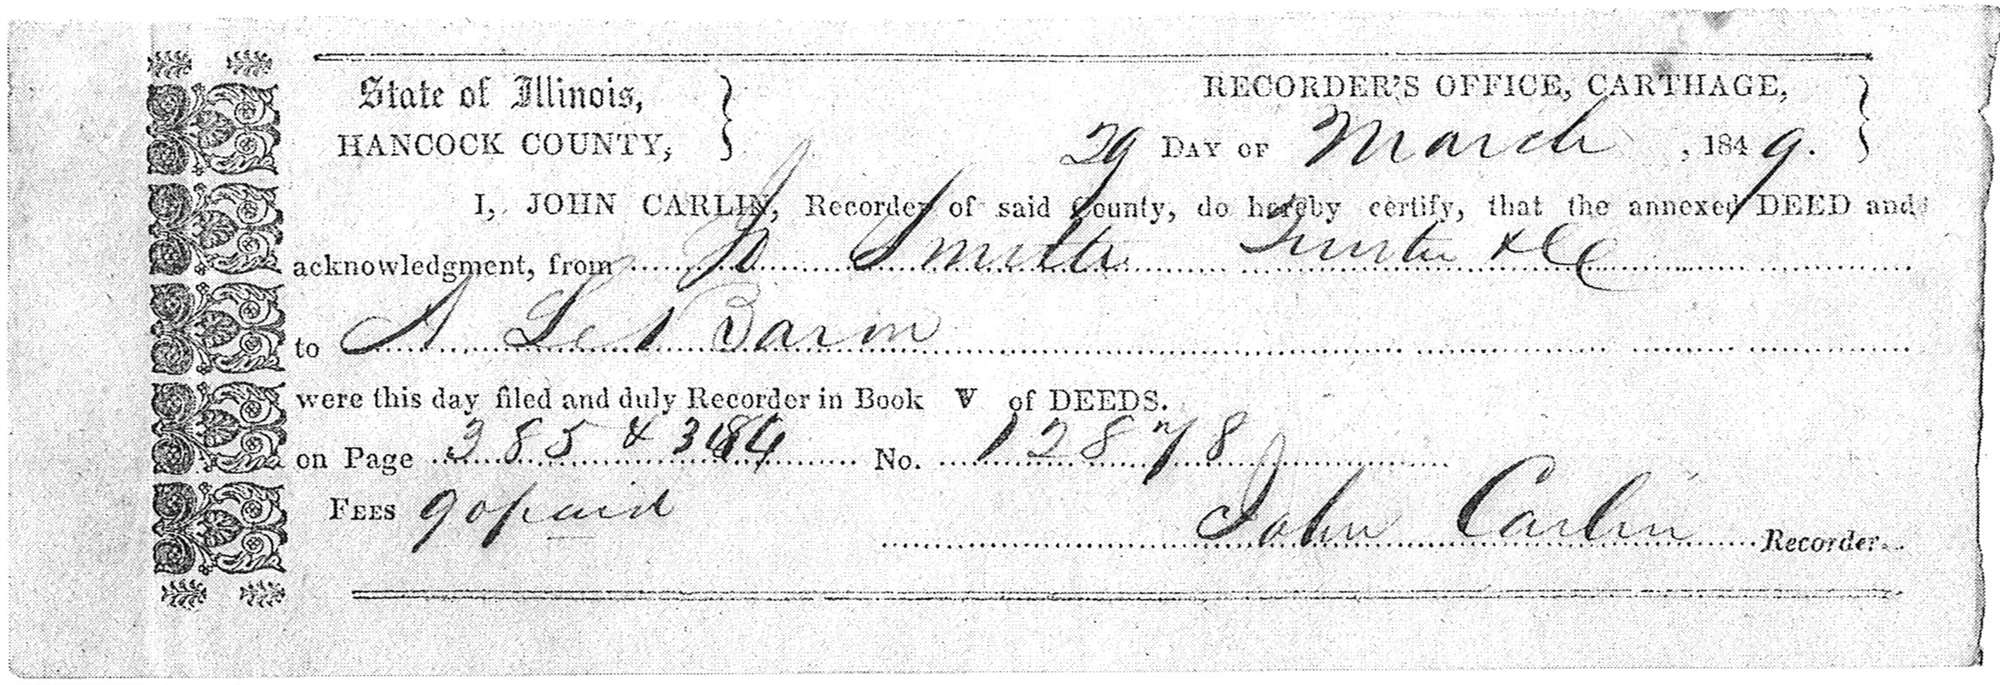 State of Illinois,
HANCOCK COUNTY,
RECORDER'S OFFICE, CARTHAGE,
29 DAY OF March, 1849.
I, JOHN CARLIN, Recorder of said County, do hereby certify, that the annexed DEED and
acknowledgment, from Smith Trustee &c
to A Le Baron
were this day filed and duly Recorder in Book V of DEEDS.
on Page 385 & No. 12878
FEES 90 paid
John Carlin Recorder.